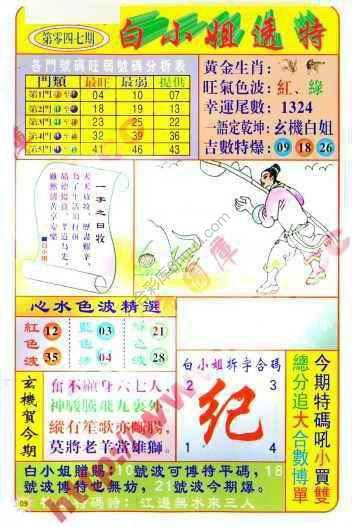 第零四七期
白小姐透特
各門號碼旺弱號碼分析表
門類 最旺 最弱 提供
第1門 04 10 07
第2門 18 19 13
第3門 23 25 22
第4門 32 39 36
第5門 41 46 43
黃金生肖:
旺氣色波:紅、綠
幸運尾數:1324
一語定乾坤:玄機白姐
吉數特爆:09 18 26
一字之曰牧
白小姐
心水色波精選
紅色波 12 35
藍色波 03 04
綠色波 21 28
玄機賀今期
奮不顧身六七人,
神駿騰飛九裏外,
縱有笙歌亦斷腸,
莫將老羊當雄獅。
白小姐拆字合碼
2 3
紀
1 4
今期特碼吼小買雙
總分追大合數博單
白小姐贈賜:10號波可博特平碼,18
號波博特也無妨,21號波今期爆。
特碼詩:江邊無水來三人